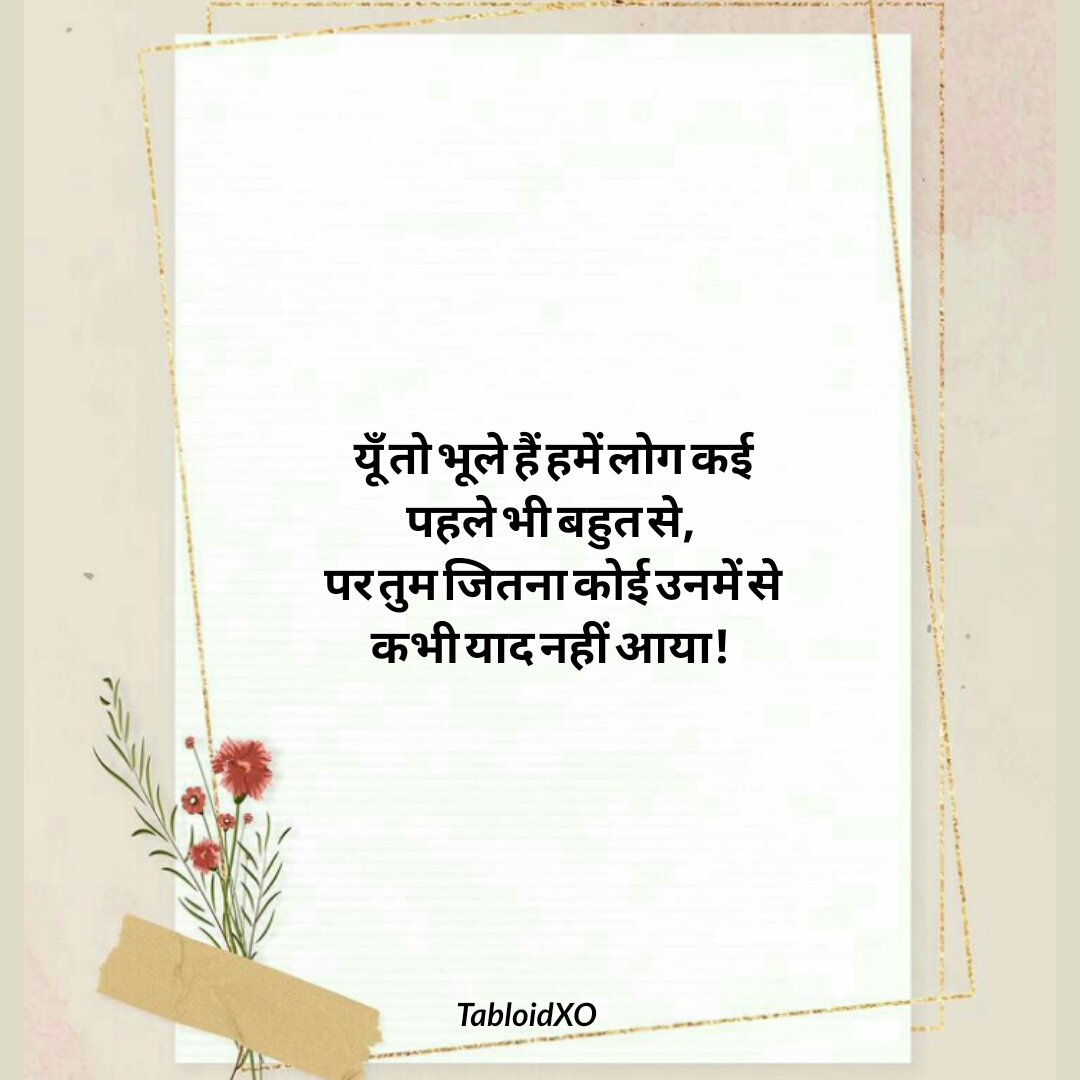 यूँ तो भूले हैं हमें लोग कई
पहले भी बहुत से,
पर तुम जितना कोई उनमें से
कभी याद नहीं आया!
TabloidXO